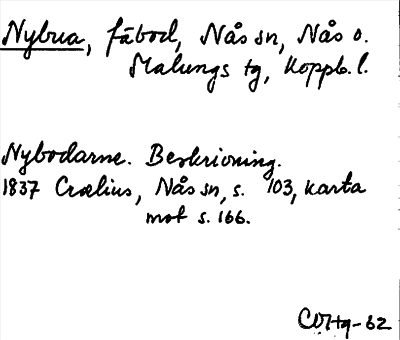 Nybua, fäbod, Nås sn, Nås o.
Malungs tg, Koppb. l.
Nybodarne. Beskrivning.
1837 Crælius, Nås sn, s. 103, karta
mot s. 166.
-62